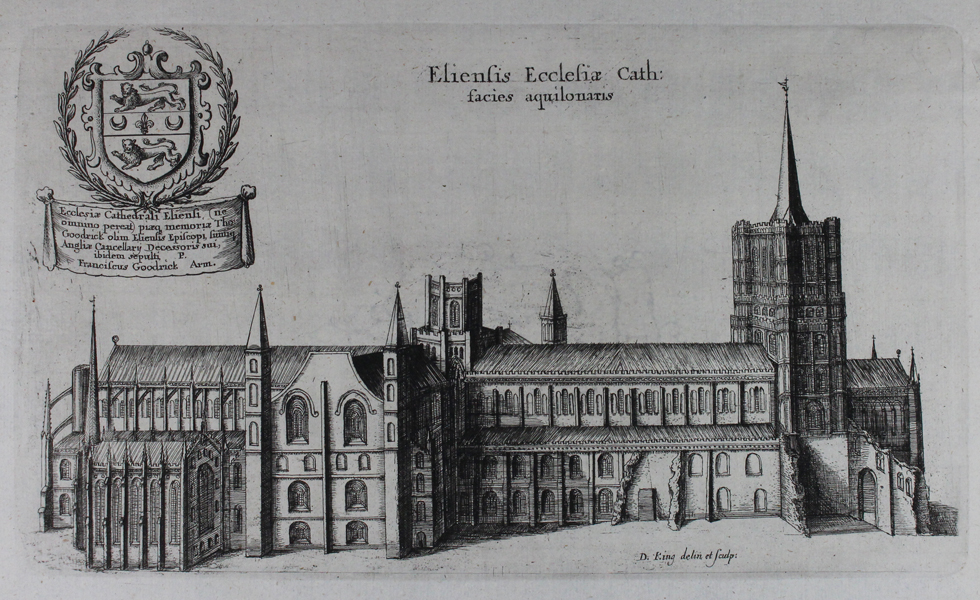 Eliensis Ecclesiæ Cath:
facies aquilonaris
Ecclesiæ Cathedrali Eliensi, (ne
omnino pereat) piæq memoriæ Tho:
Goodrick olim Eliensis Episcopi, simulq
Angliæ Cancellarÿ Decessoris sui,
ibidem sepulti P.
Franciscus Goodrick Arm.
D. King delin et sculp: